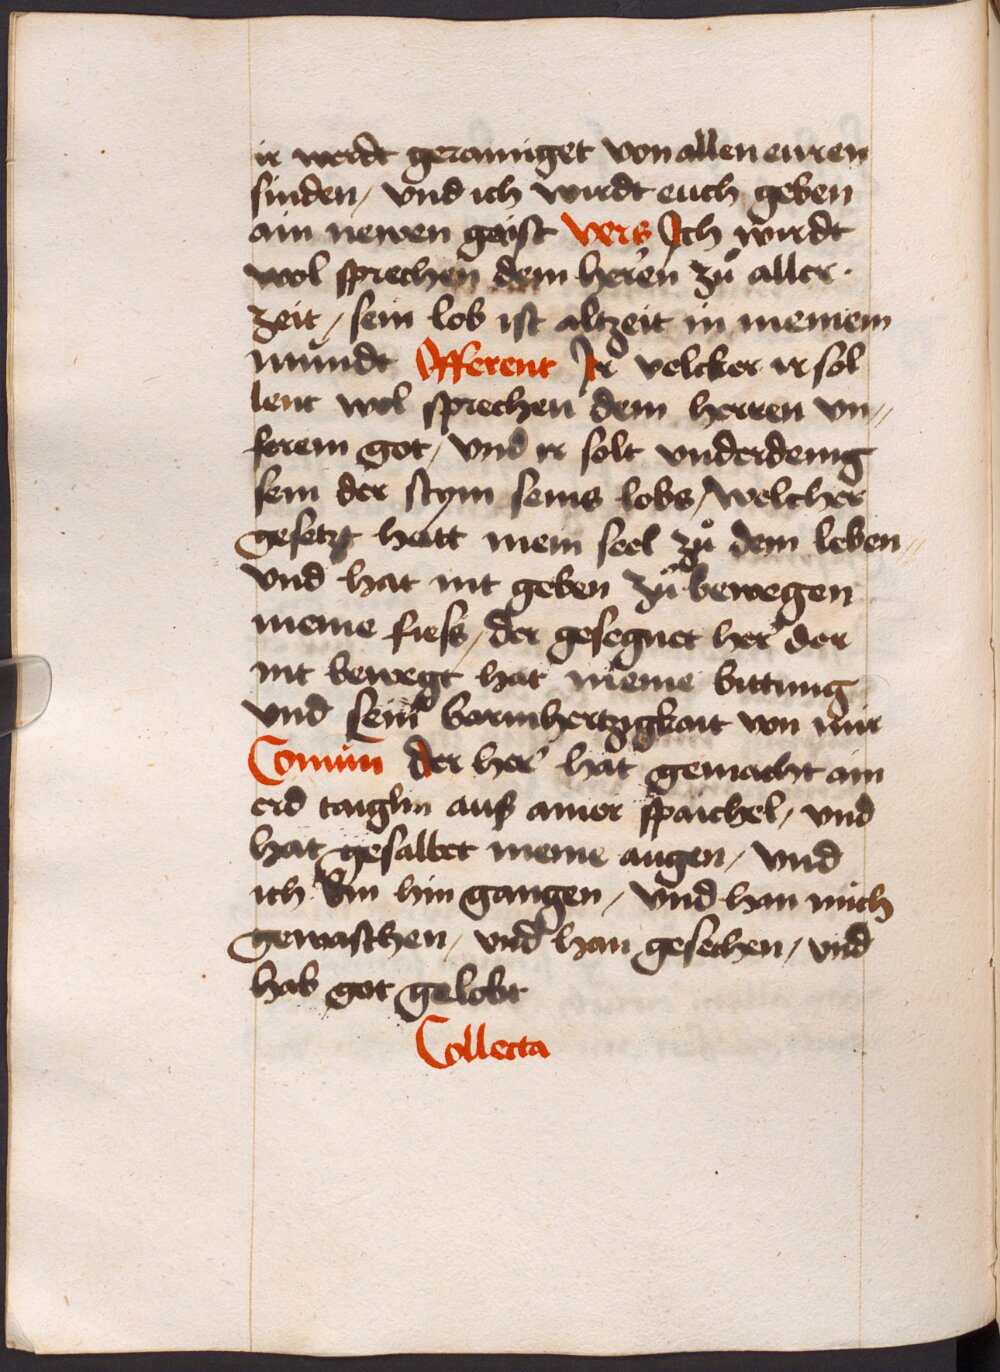 ir werdt gerainiget von allen euren
sinden / vnd ich wirdt euch geben
ain newen gaist Vers Ich wirdt
wol sprechen dem heren zů aller
zeit / sein lob ist altzeit in meinem
mundt Offerent Ir velcker ir sol
lent wol sprechen dem herren vn〃
serem got / vnd ir solt vnderdenig
sein der stym seins lobs / welcher
gesetzt hatt mein seel zů dem leben〃
vnd hat nit geben zů bewegen
meine fiess / der gesegnet her der
nit bewegt hat meine bittung
vnd sein barmhertzigkait von mir
Comun der her hat gemacht ain
erd taiglin aus ainer spaichel / vnd
hat gesalbet meine augen / vnd
ich bin hin gangen / vnd han mich
gewaschen / vnd han gesechen / vnd
hab got gelobt
Collecta